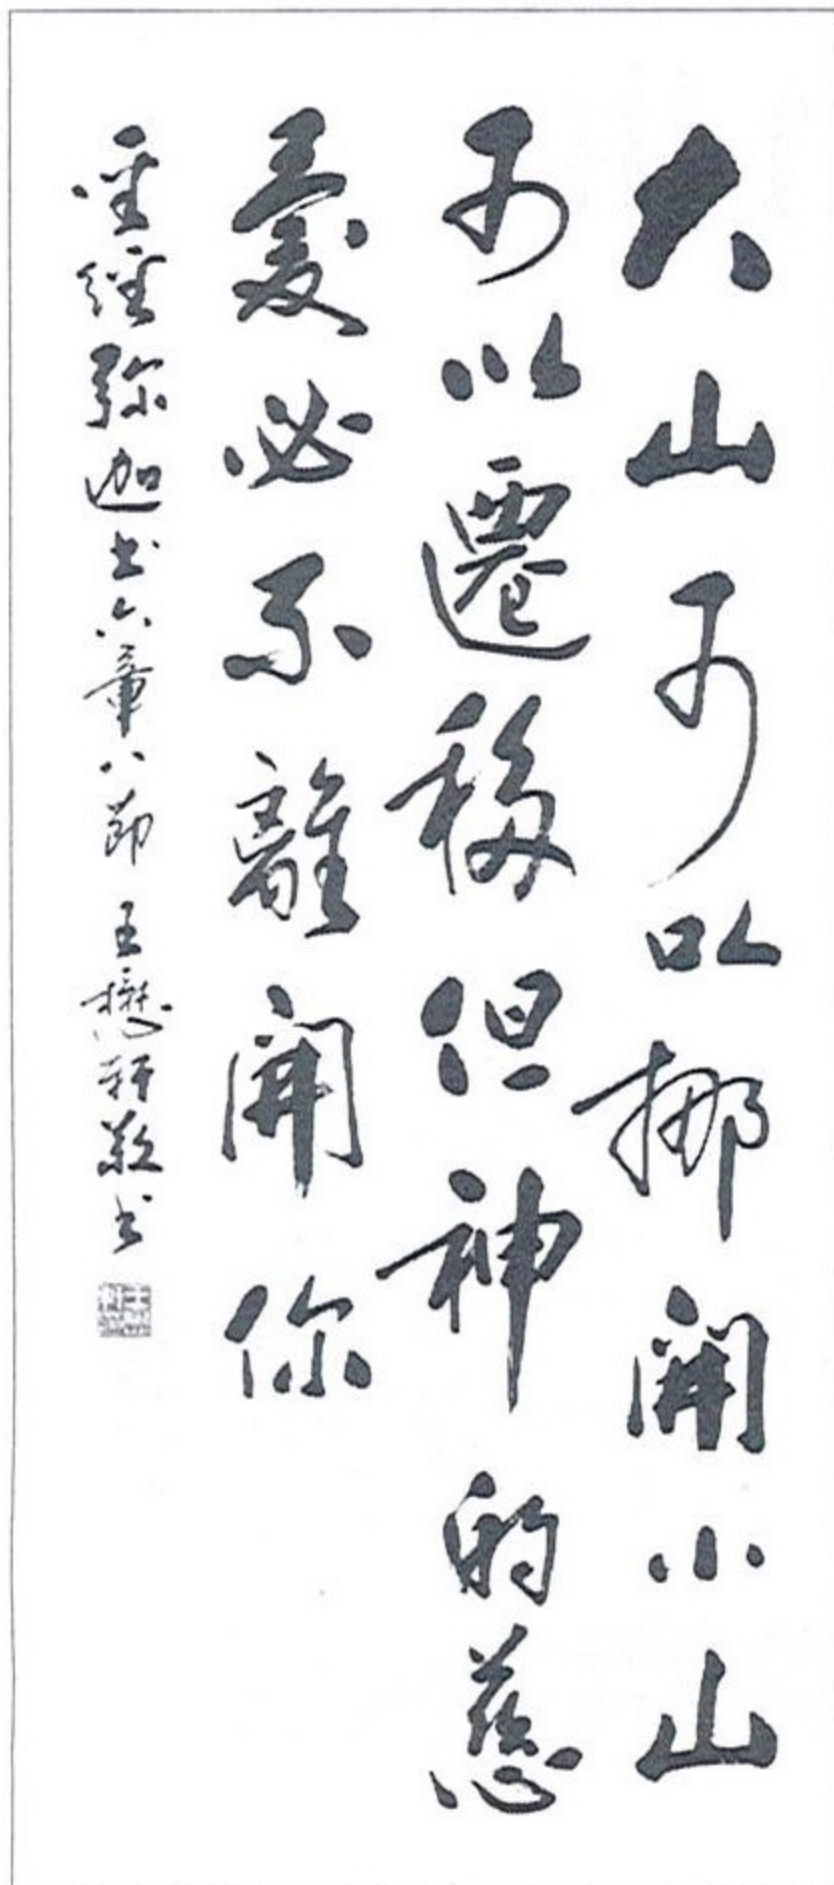 大山可以挪開小山
可以遷移但神的慈
愛必不離開你
聖經弥迦书六章八節 王懋軒敬书